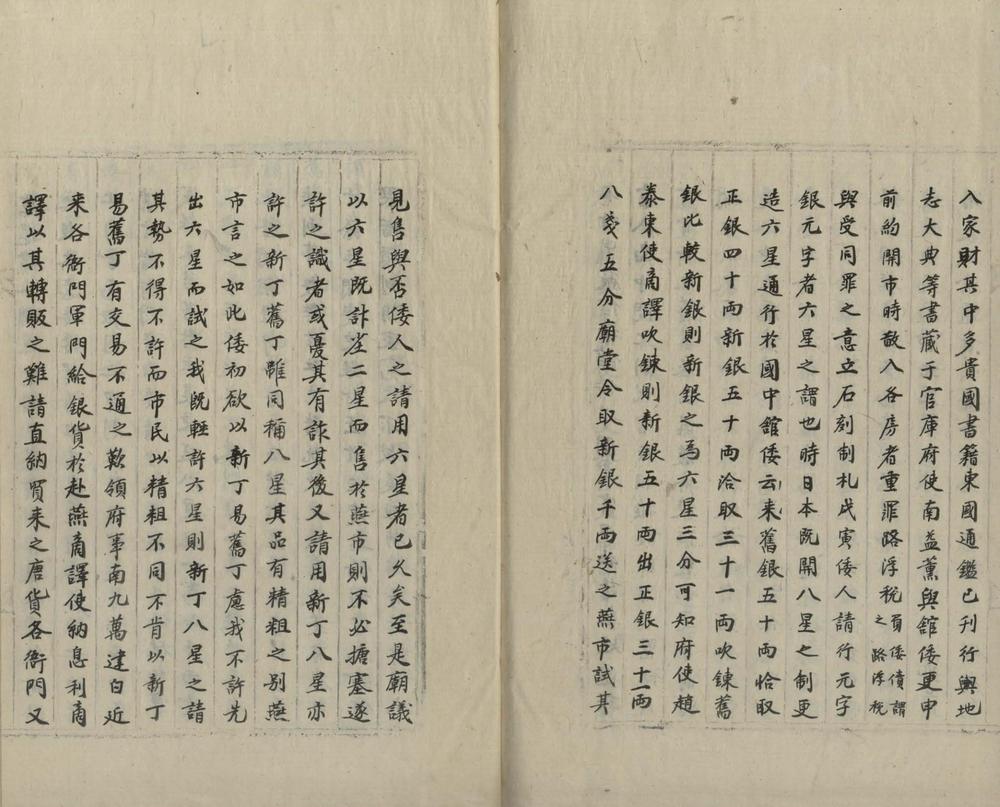 入家財其中多貴國書籍東國通鑑已刊行輿地
志大典等書藏于官庫府使南益薰與舘倭更申
前約開市時敢入各房者重罪路浮稅負倭債謂之路浮稅
與受同罪之意立石刻制札戊寅倭人請行元字
銀元字者六星之謂也時日本旣開八星之制更
造六星通行於國中舘倭云来舊銀五十兩恰取
正銀四十兩新銀五十兩洽取三十一兩吹鍊舊
銀比較新銀則新銀之爲六星三分可知府使趙
泰東使商譯吹鍊則新銀五十兩出正銀三十一兩
八戔五分廟堂令取新銀千兩送之燕市試其
見售與否倭人之請用六星者已久矣至是廟議
以六星旣計岦二星而售於燕市則不必搪塞遂
許之識者或憂其有詐其後又請用新丁八星亦
許之新丁舊丁雖同稱八星其品有精粗之別燕
市言之如此倭初欲以新丁易舊丁慮我不許先
出六星而試之我旣輕許六星則新丁八星之請
其勢不得不許而市民以精粗不同不肯以新丁
易舊丁有交易不通之歎領府事南九萬建白近
来各衙門軍門給銀貨於赴燕商譯使納息利商
譯以其轉販之難請直納買来之唐貨各衙門又